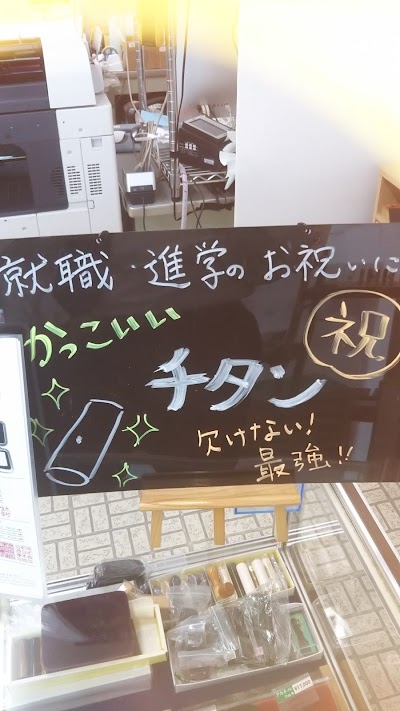 就職・進学の お祝いに
かっこいい
祝
チタン
欠けない!
最強!!